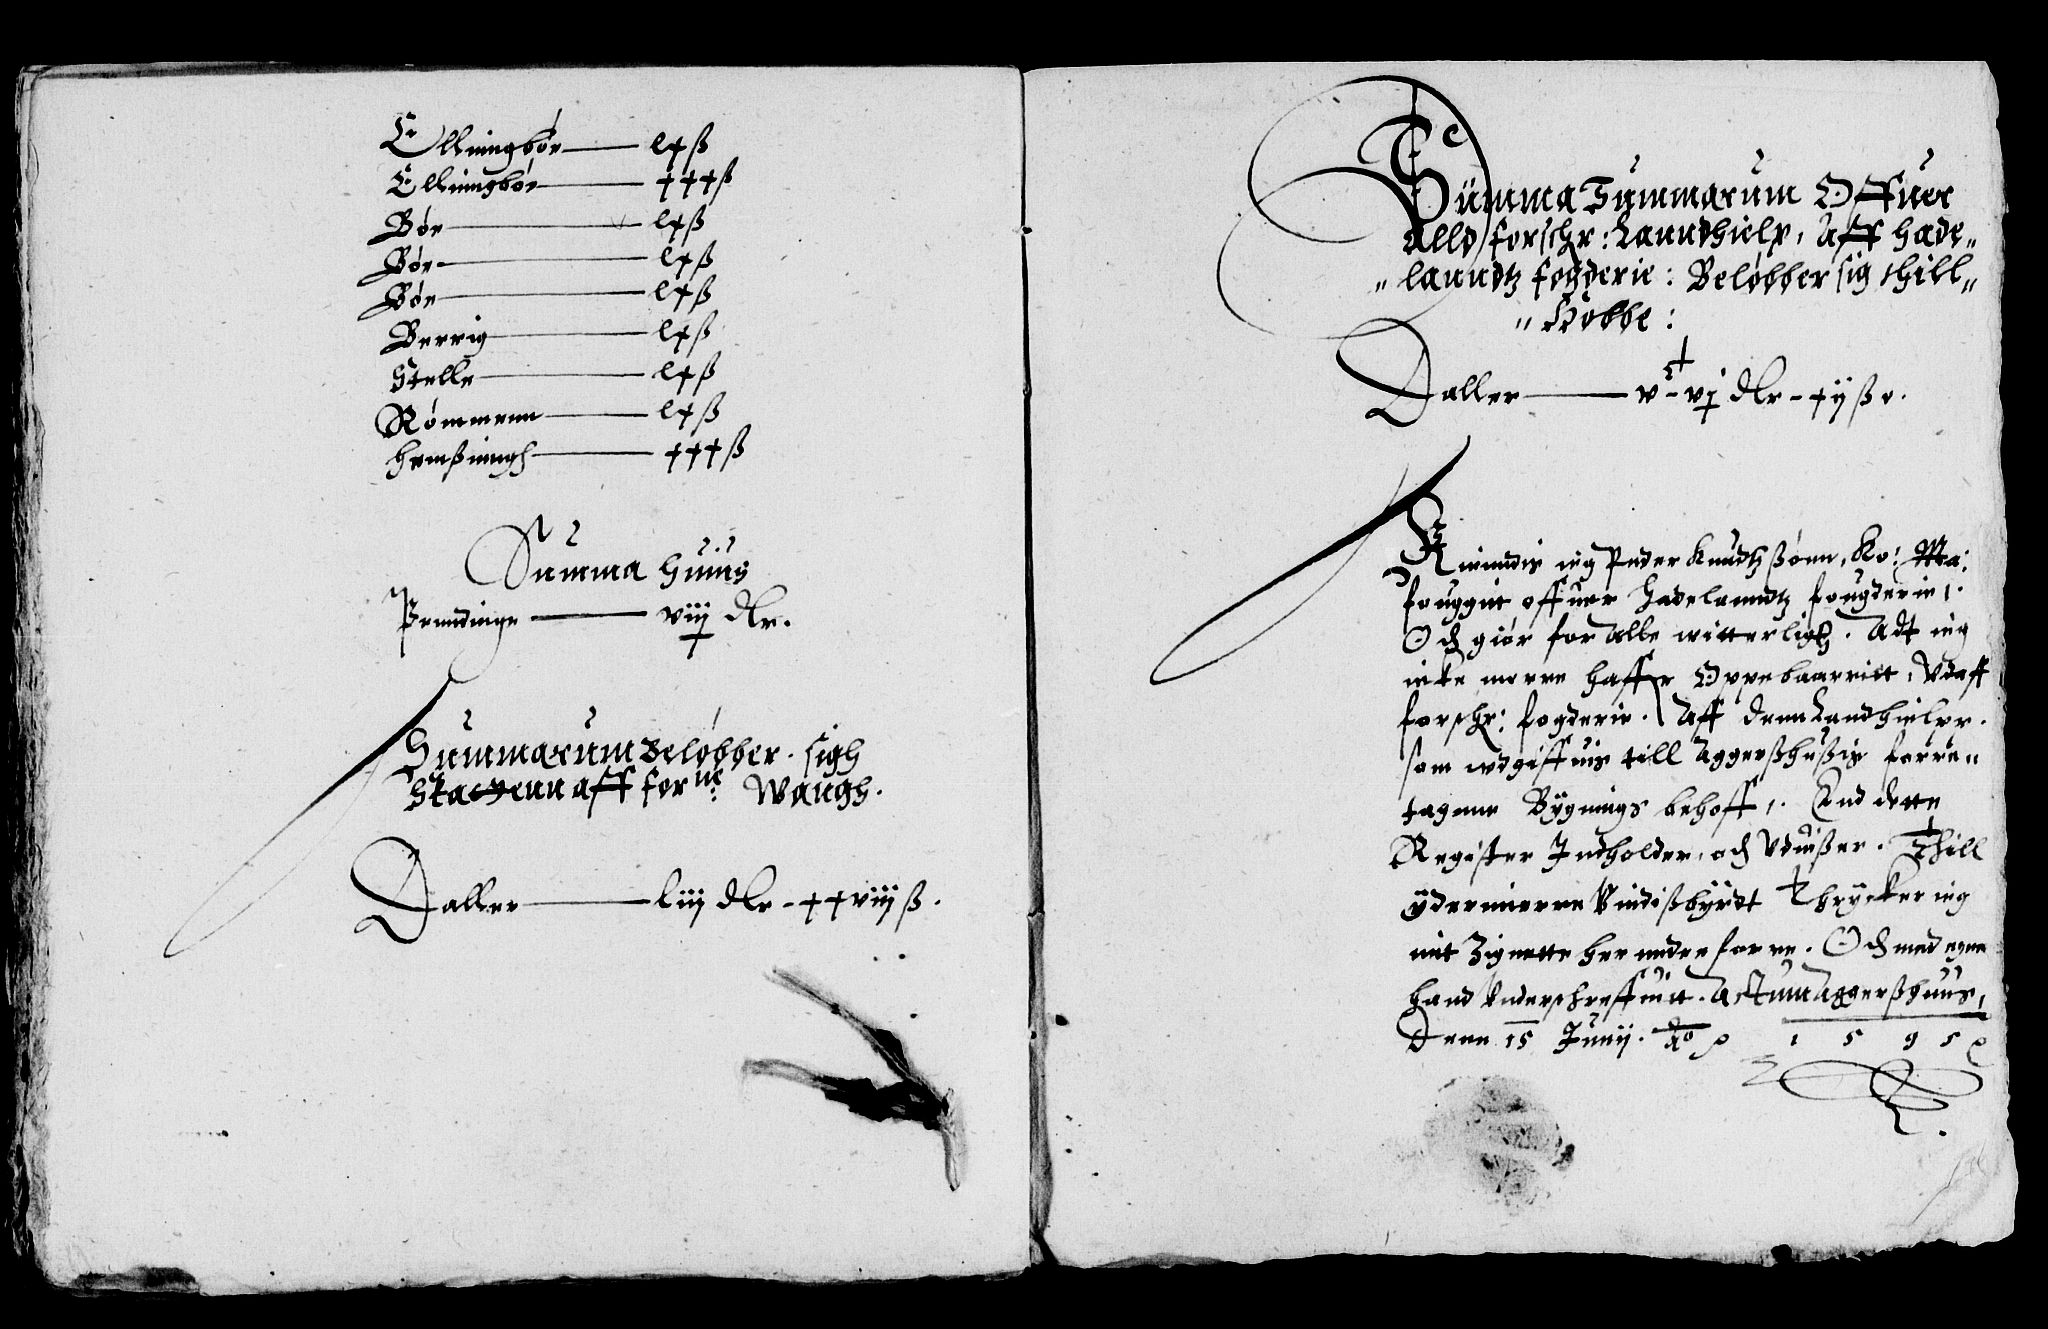 Ellningbøn — lxß
Ellningbøn — xxxß
Bøn — lxß
Bøn — lxß
Bøn — lxß
Berrig — lxß
Stelle — lxß
Rømmenn — lxß
Hemßningh — xxxß
Summa Huius
Penndinge — viij dlr.
Summarum Beløbber. sigh
Skatzenn aff forne: Wangh.
Daller — liij dlr - xxviijß.
Summa Summarum Offuer
alld forschr: Lanndhielp, Aff Hade„
„lanndtz fogderie: Beløbber sig thill„
„Hobbe:
Daller — vc - vj dlr - xijß
Kiendis ieg Peder Knudtzßønn, Ko: Ma:
fouggitt offuer Hadelanndtz fougderie,.
Och giør for Alle witterligtt. Adt ieg
icke merre haffr Oppebaarritt, Vdaff
forschr: fogderie. Aff denn Landhielpe.
som wdgiffuis till Aggerßhußis forre„
tagenne Bÿgnings behoff,. End dette
Register Indholder, och Vduißer. Thill
ÿdermierre Vindißbÿrdt Thrÿcker ieg
mit Zignette her neden forre. Och med egen
hand Vnderschreffuitt. Actum Aggerßhuus,
Denn 15 Junij. Ao 1595